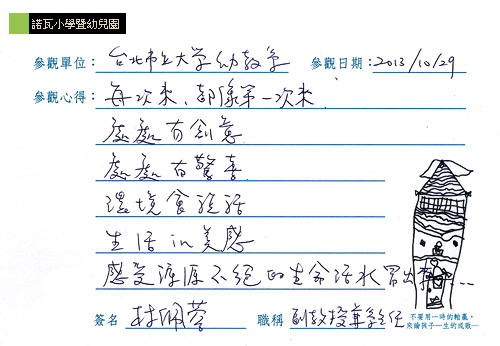 諾瓦小學暨幼兒園
參觀單位：台北市立大学幼教系 參觀日期：2013/10/29
參觀心得：每次來、都像第一次來
處處有創意
處處有驚喜
環境會說話
生活in美感
感受源源不絕的生命活水冒出來---
簽名 林佩蓉 職稱 副教授兼系主任
不要用一時的輸贏，
來論孩子一生的成敗—